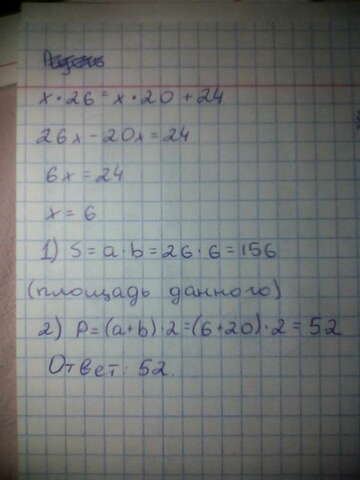 x·26=x·20+24
26x-20x=24
6x=24
x=6
1) S=a·b=26·6=156
(площадь данного)
2) P=(a+b)·2=(6+20)·2=52
Ответ: 52.